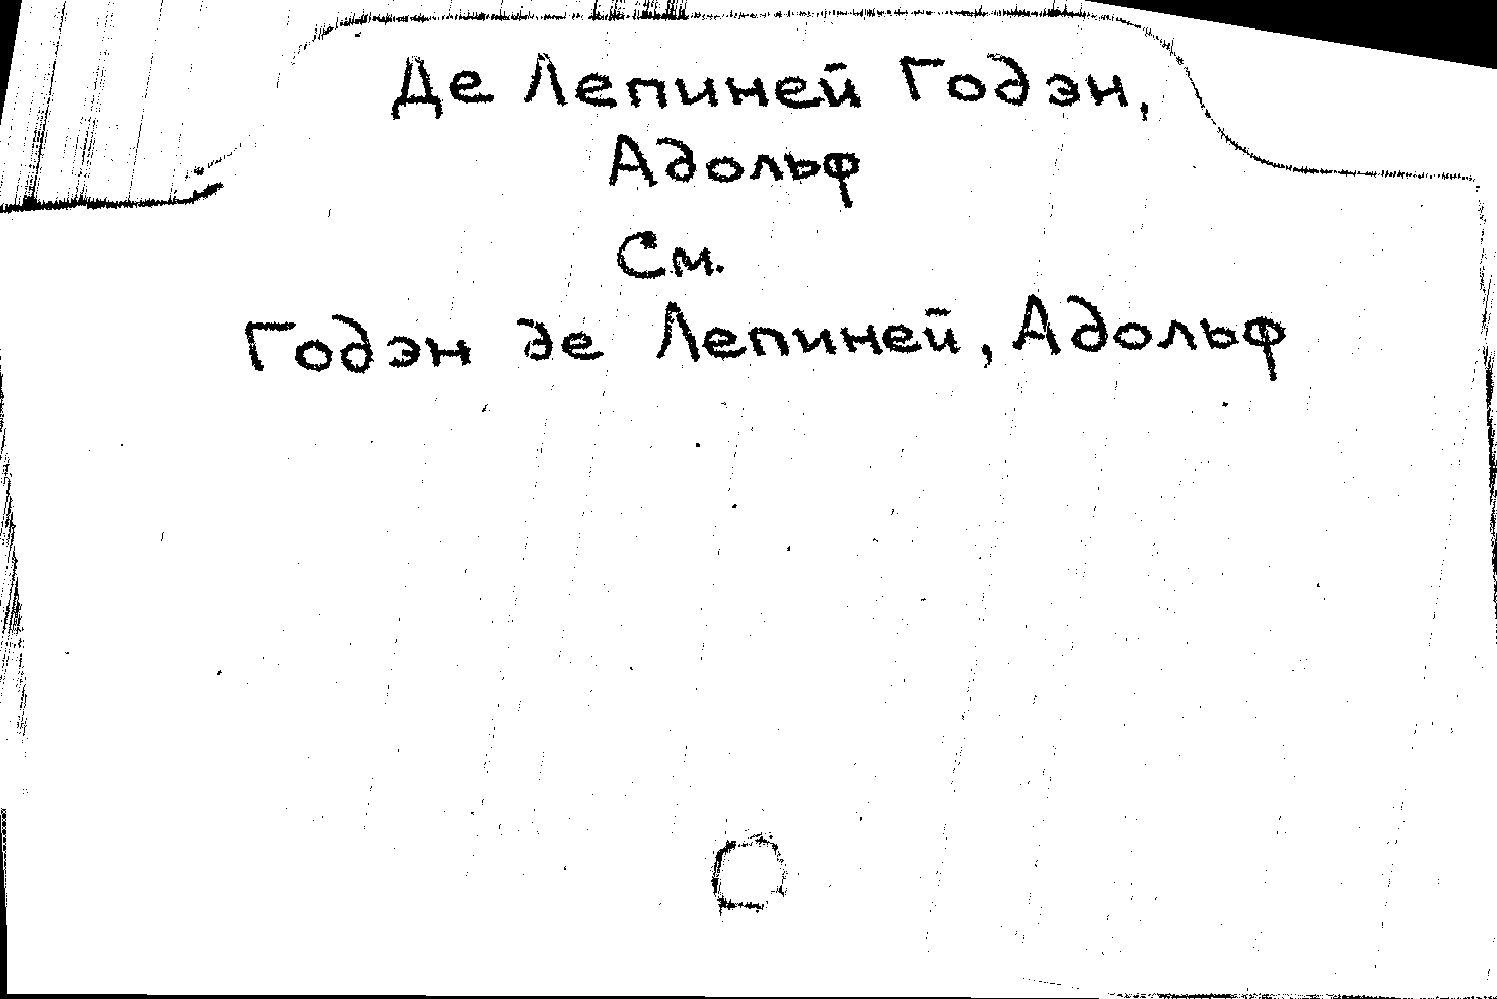 Де Лепиней Годэн,
Адольф
См.
Годэн де Лепиней, Адольф